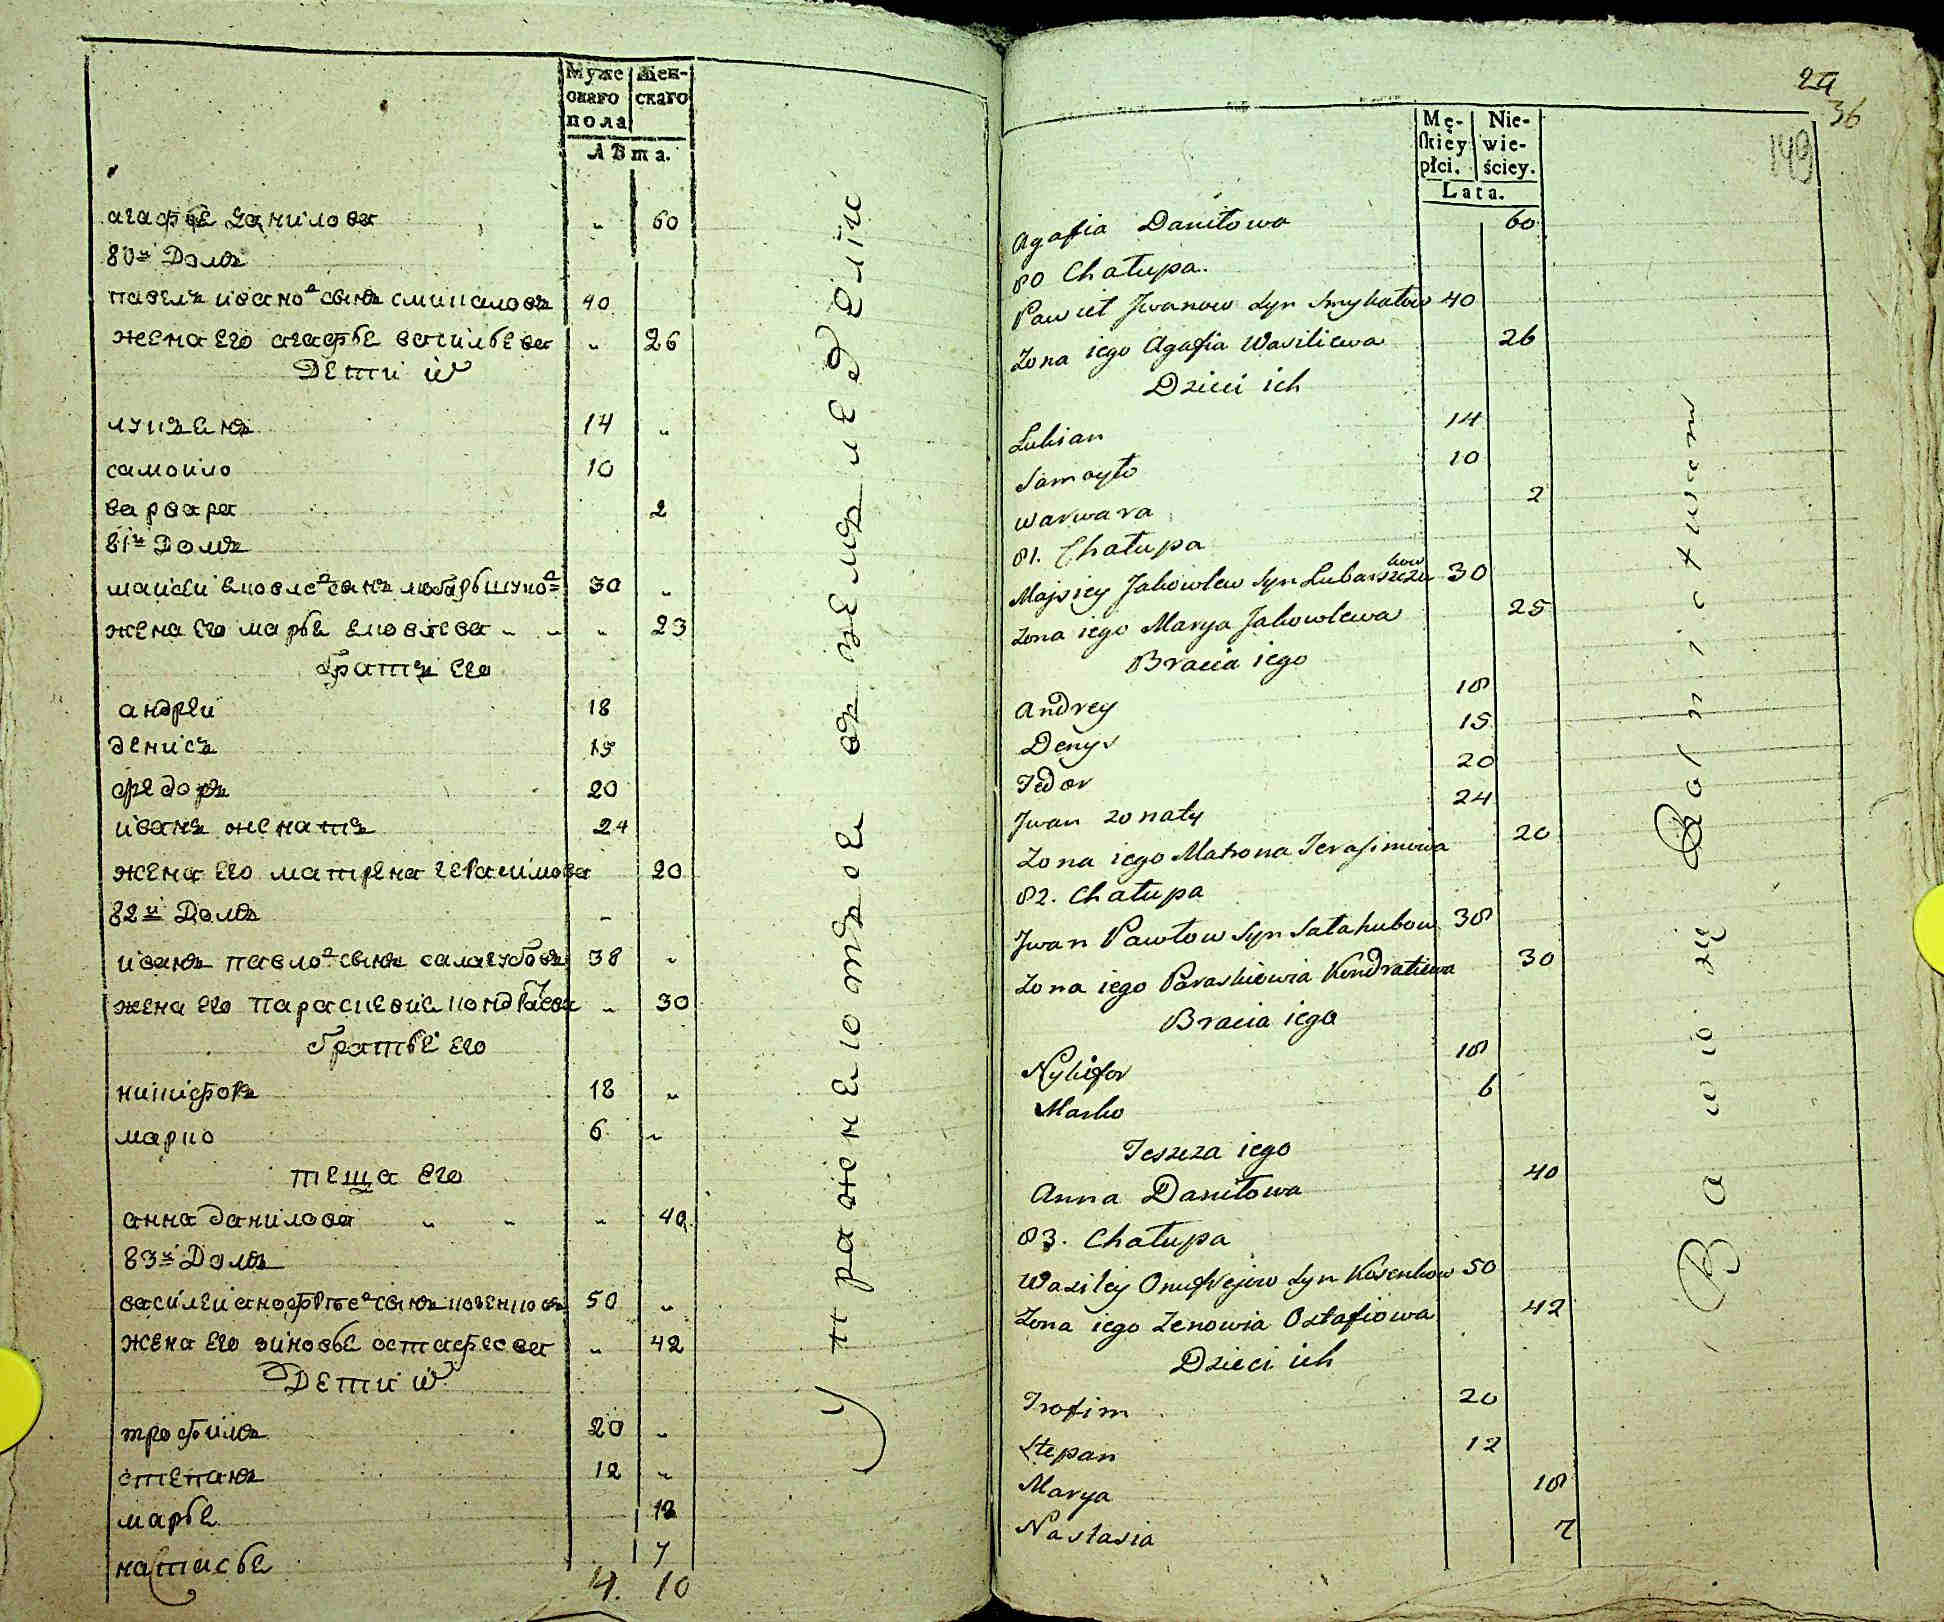 Муже
скаго
пола
Жен-
скаго
Лѣта.
агафѣе данилова „ 60
80й Домъ
павелъ ивановъ сынъ смыкаловъ 40
жена его агафье васильева „ 26
Дети их
лукъенъ 14 „
самоило 10
варвара 2
81й Домъ
жена его марье яковлева „ „ „ 23
братья его
андреи 18
денисъ 15
федоръ 20
иванъ женатъ 24
жена его матрена герасимова 20
82й Домъ „
иванъ павловъ сынъ салагубовъ 38 „
жена его парасковие кондратева „ 30
братье его
никифоръ 18 „
марко 6 „
теща его
анна данилова „ „ „ 40
83й Домъ
василеи сынъ косенковъ 50 „
жена его зиновье остафеева „ 42
Дети их
трофимъ 20 „
степанъ 12 „
марье 18
настасье 7
14. 10
Упражнению отъ ое въ землѣделіе
24
36
149
Mę-
skiéy
płci.
Nie-
wie-
ściey.
Lata.
Agafia Daniłowa 60
80 Chałupa.
Paweł Jwanow Syn Smykałow 40
Zona iego Agafia Wasiliewa 26
Dzieci ich
Lukian 14
Samoyło 10
Warwara 2
81. Chałupa
Mojsiey Jakowlew Syn Lubarszczukow 30
Zona iego Marya Jakowlewa 25
Bracia iego
Andrey 18
Denys 15
Fedor 20
Jwan zonaty 24
Zona iego Matrona Jerasimowa 20
82. Chałupa
Jwan Pawłow Syn Sałahubow 38
Zona iego Paraskiowia Kondratiewa 30
Bracia iego
Nykifor 18
Marko 6
Teszcza iego
Anna Daniłowa 40
83. Chałupa
Wasiley Onufrejew Syn Kosenkow 50
Zona iego Zenowia Ostafiowa 42
Dzieci ich
Trofim 20
Stepan 12
Marya 18
Nastasia 7
Bawią się Rolnictwem